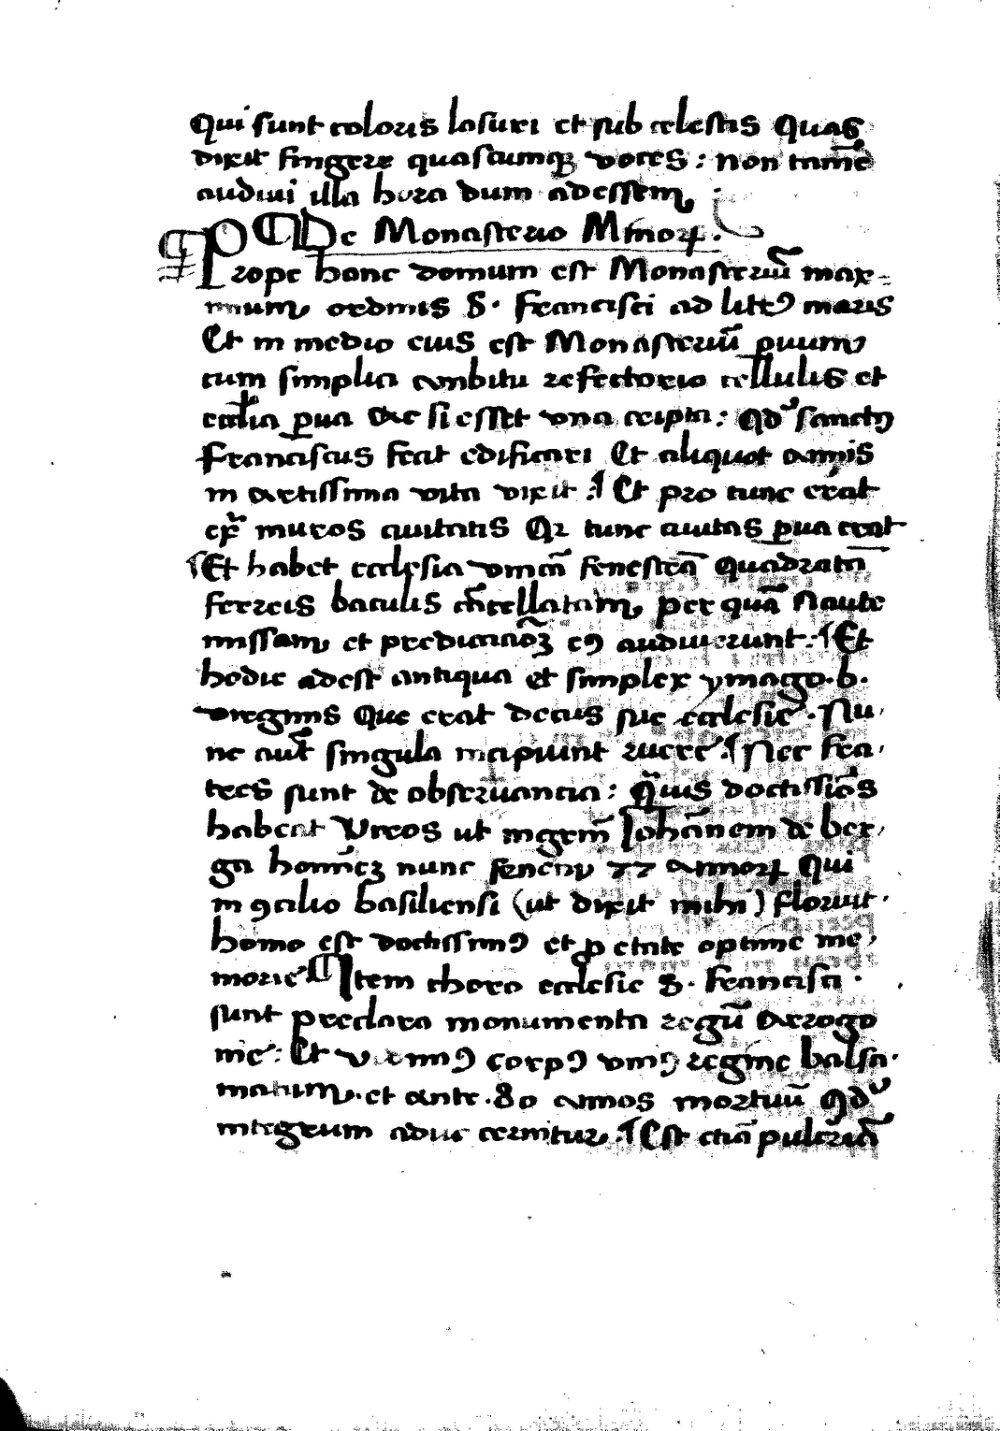 Qui sunt coloris lasuri et sub celestis Quas
dixit fingere quascumqꝫ voces : non tamē
audiui illa hora dum adessem .
¶ De Monasterio Minoꝝ .
Prope hanc domum est Monasteriū max-
imum ordinis S. Francisci ad littꝰ maris
Et in medio eius est Monasteriū ꝑuum
cum simplici ambitu refectorio cellulis et
eccl̄ia ꝑua Ac si esset vna cripta : Qd' sanctꝰ
Franciscus fecit edificari Et aliquot annis
in artissima vita vixit : ¶ Et pro tunc erat
ext̄ muros ciuitatis Qꝛ tunc ciuitas ꝑua erat
¶ Et habet ecclesia vnicā fenestrā Quadratā
ferreis baculis cācellatam per quā Naute
missam et predicacioꝫ eꝰ audiuerunt : ¶ Et
hodie adest antiqua et simplex ymago . b .
virginis Que erat decus sue ecclesie . Nu,
nc aut̄ singula incipiunt ruere . ¶ Nec fra,
tres sunt de obseruancia : Qͣuis doctissīos
habeat Viros ut ingeniū Iohānem de ber,
ga homīeꝫ nunc senem 77 Annoꝝ Qui
in ꝯcilio basiliensi (ut dixit mihi) floruit .
homo est doctissimꝰ et ꝓ etate optime me,
morie ¶ Item choro ecclesie S. Francisci .
sunt preclara monumenta regū Arrogo
nie : Et vidimꝰ corpꝰ vniꝰ regine balsa .
matum . et ante . 80 annos mortuū Qd'
integrum aduc cernitur . ¶ Est etiā pulcrūā